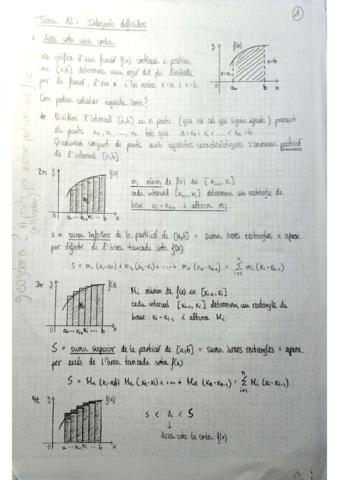 1
Tema 12: Integrals definides
1. Àrea sota una corba
La gràfica d'una funció f(x) contínua i positiva
en [a,b] determina una regió del pla limitada
per la funció, l'eix X i les rectes x=a i x=b.
Com podem calcular aquesta àrea?
y f(x)
x=a x=b
a b x
1r Dividim l'interval [a,b] en n parts (que no cal que siguin iguals) prenent
els punts x₀, x₁, ..., xₙ tals que a=x₀ < x₁ < ... < xₙ=b
D'aquest conjunt de punts amb aquestes característiques s'anomena partició
de l'interval [a,b]
2n y f(x)
a ... b x
mᵢ mínim de f(x) en [xᵢ₋₁, xᵢ]
cada interval [xᵢ₋₁, xᵢ] determina un rectangle de
base xᵢ-xᵢ₋₁ i altura mᵢ
s = suma inferior de la partició de [a,b] = suma àrees rectangles = aprox
per defecte de l'àrea tancada sota f(x)
s = m₁(x₁-x₀) + m₂(x₂-x₁) + ... + mₙ(xₙ-xₙ₋₁) = Σ mᵢ(xᵢ-xᵢ₋₁)
3r y f(x)
a ... b x
Mᵢ màxim de f(x) en [xᵢ₋₁, xᵢ]
cada interval [xᵢ₋₁, xᵢ] determina un rectangle de
base xᵢ-xᵢ₋₁ i altura Mᵢ
S = suma superior de la partició de [a,b] = suma àrees rectangles = aprox
per excés de l'àrea tancada sota f(x)
S = M₁(x₁-x₀) + M₂(x₂-x₁) + ... + Mₙ(xₙ-xₙ₋₁) = Σ Mᵢ(xᵢ-xᵢ₋₁)
4t y f(x)
a ... b x
s < A < S
↓
Àrea sota la corba f(x)